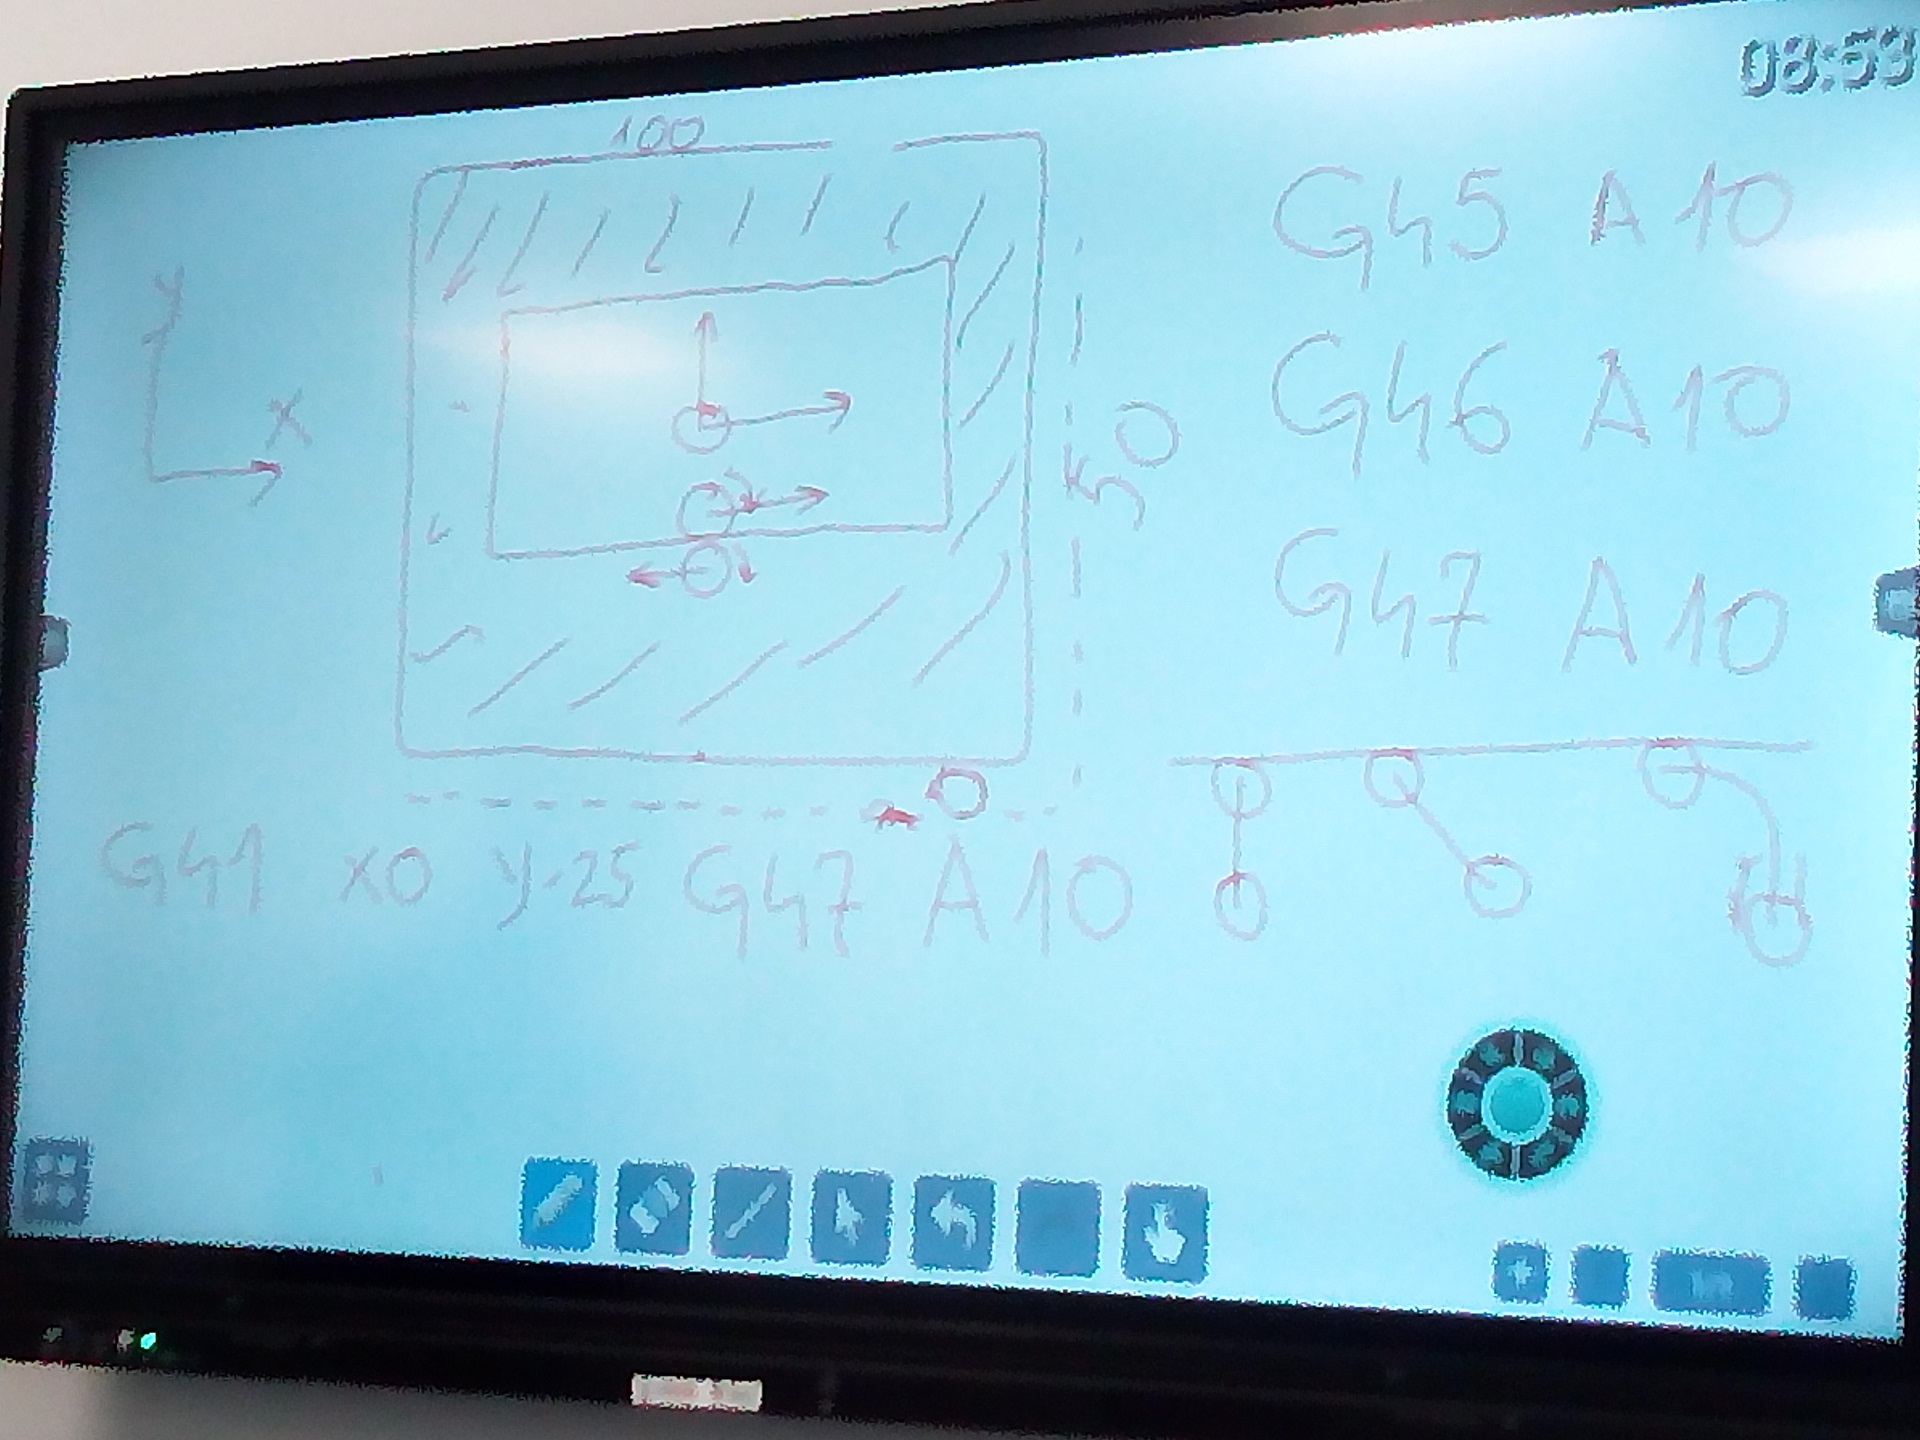 08:59
100
G45 A10
y
G46 A10
x
50
G47 A10
G41 x0 y-25 G47 A10